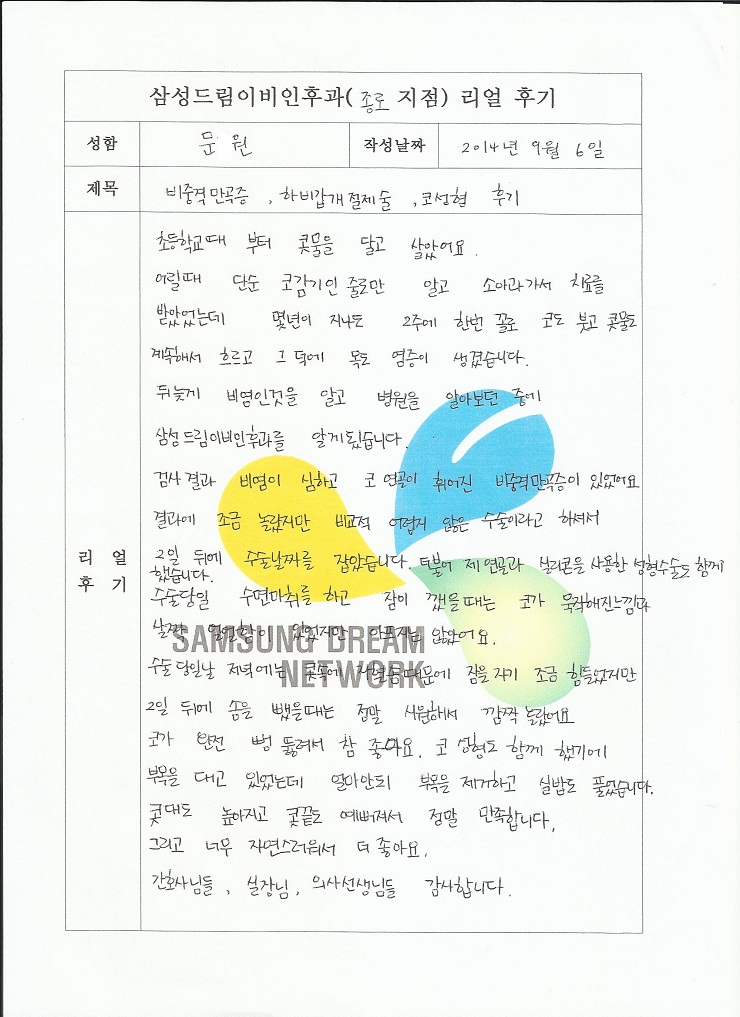 삼성드림이비인후과( 종로 지점) 리얼 후기
성함 문 원 작성날짜 2014년 9월 6일
제목 비중격만곡증 , 하비갑개절제술 , 코성형 후기
리얼 후기
초등학교때 부터 콧물을 달고 살았어요.
어릴때 단순 코감기인 줄로만 알고 소아과가서 치료를
받았었는데 몇년이 지나도 2주에 한번 꼴로 코도 붓고 콧물도
계속해서 흐르고 그 덕에 목도 염증이 생겼습니다.
뒤늦게 비염인것을 알고 병원을 알아보던 중에
삼성드림이비인후과를 알게됬습니다.
검사결과 비염이 심하고 코 연골이 휘어진 비중격만곡증이 있었어요
결과에 조금 놀랐지만 비교적 어렵지 않은 수술이라고 하셔서
2일 뒤에 수술날짜를 잡았습니다. 더불어 제 연골과 실리콘을 사용한 성형수술도 함께
했습니다.
수술당일 수면마취를 하고 잠이 깼을때는 코가 묵직해진느낌과
살짝 얼얼함이 있었지만 아프지는 않았어요.
SAMSUNG DREAM
NETWORK
수술 당일날 저녁에는 콧속에 지혈솜때문에 잠을 자기 조금 힘들었지만
2일 뒤에 솜을 뺐을때는 정말 시원해서 깜짝 놀랐어요
코가 완전 뻥 뚫려서 참 좋아요. 코 성형도 함께 했기에
부목을 대고 있었는데 얼마안되 부목을 제거하고 실밥도 풀었습니다.
콧대도 높아지고 콧끝도 예뻐져서 정말 만족합니다.
그리고 너무 자연스러워서 더 좋아요.
간호사님들, 실장님, 의사선생님들 감사합니다.